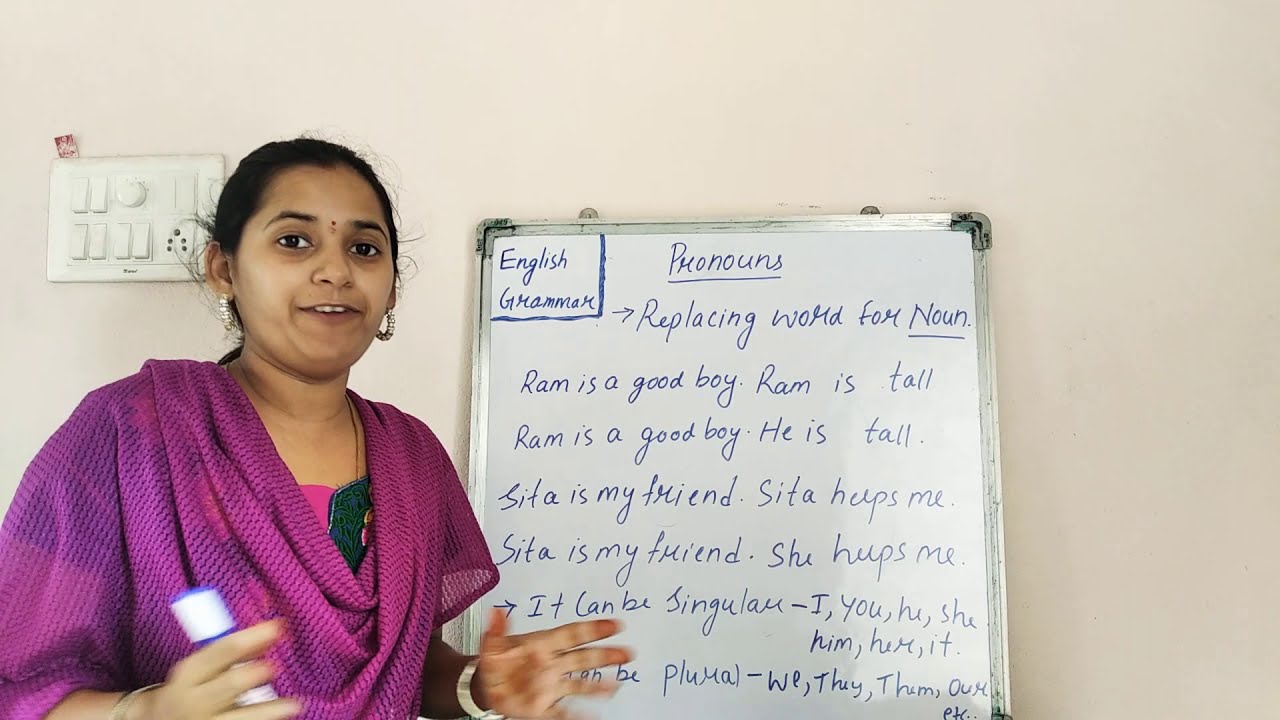 English
Grammar
Pronouns
→ Replacing word for Noun.
Ram is a good boy. Ram is tall
Ram is a good boy. He is tall.
Sita is my friend. Sita helps me.
Sita is my friend. She helps me.
→ It Can be Singular - I, you, he, she
him, her, it.
can be plural - we, They, Them, Our
etc..